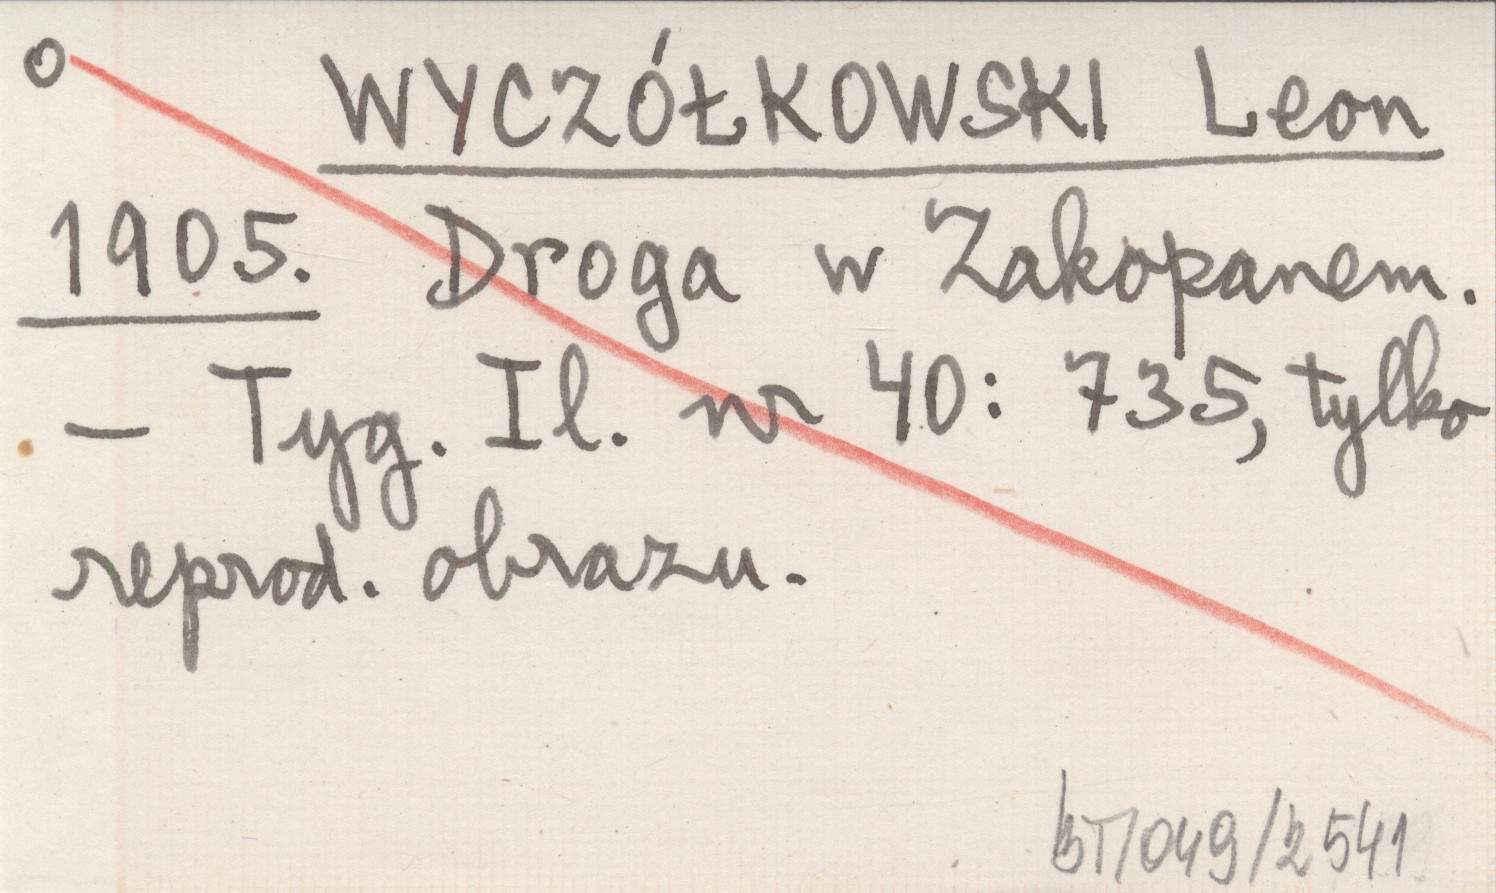 o WYCZÓŁKOWSKI Leon
1905. Droga w Zakopanem.
— Tyg. Il. nr 40: 735, tylko
reprod. obrazu.
BT/049/2541